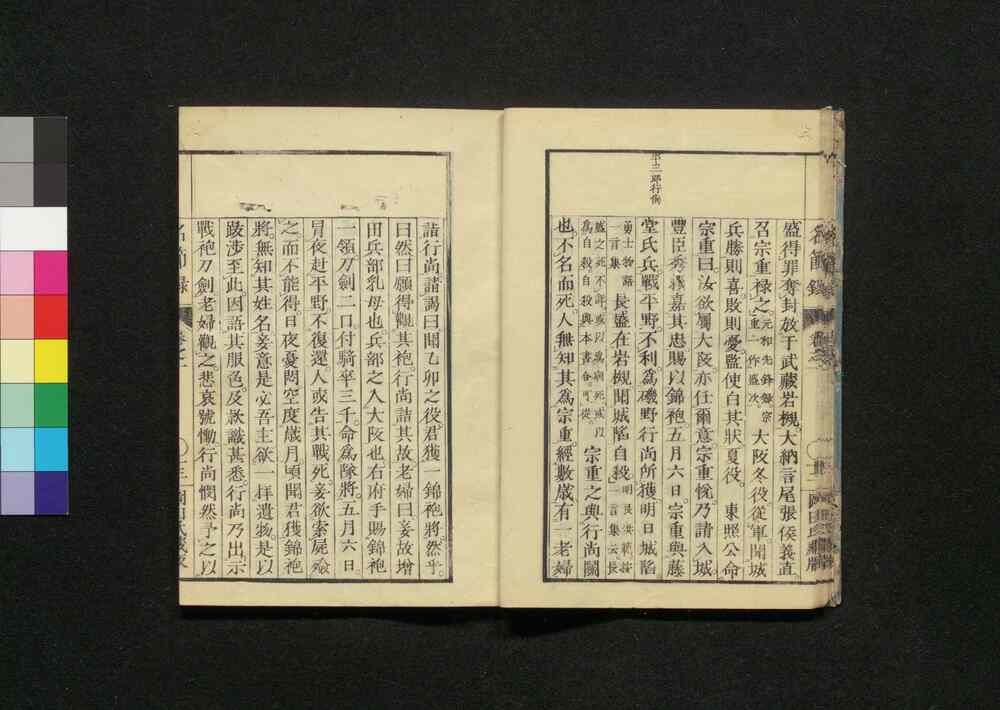 盛得罪奪封放于武藏岩槻大納言尾張侯義直
召宗重禄之元和先鋒録宗重一作盛次大阪冬役從軍聞城
兵勝則喜敗則憂監使白其狀夏役東照公命
宗重曰汝欲屬大阪亦任爾意宗重悅乃請入城
豐臣秀賴嘉其忠賜以錦袍五月六日宗重與藤
堂氏兵戰平野不利爲磯野行尚所獲明日城陷
勇士物語一言集長盛在岩槻聞城陷自殺一言集云長
盛之死不詳或以爲病死或以爲自殺自殺與本書合可從宗重之與行尚鬭
也不名而死人無知其爲宗重經數歲有一老婦
三郎行尚
詣行尚請謁曰聞乙卯之役君獲一錦袍將然乎
曰然曰願得觀其袍行尚詰其故老婦曰妾故增
田兵部乳母也兵部之入大阪也右府手賜錦袍
一領刀劍二口付騎卒三千命爲隊將五月六日
冒夜赴平野不復還人或告其戰死妾欲索屍殮
之而不能得日夜憂悶空度歲月頃聞君獲錦袍
將無知其姓名妾意是必吾主欲一拜遺物是以
跋涉至此因語其服色及款識甚悉行尚乃出示
戰袍刀劍老婦觀之悲哀號慟行尚憫然予之以
名節録